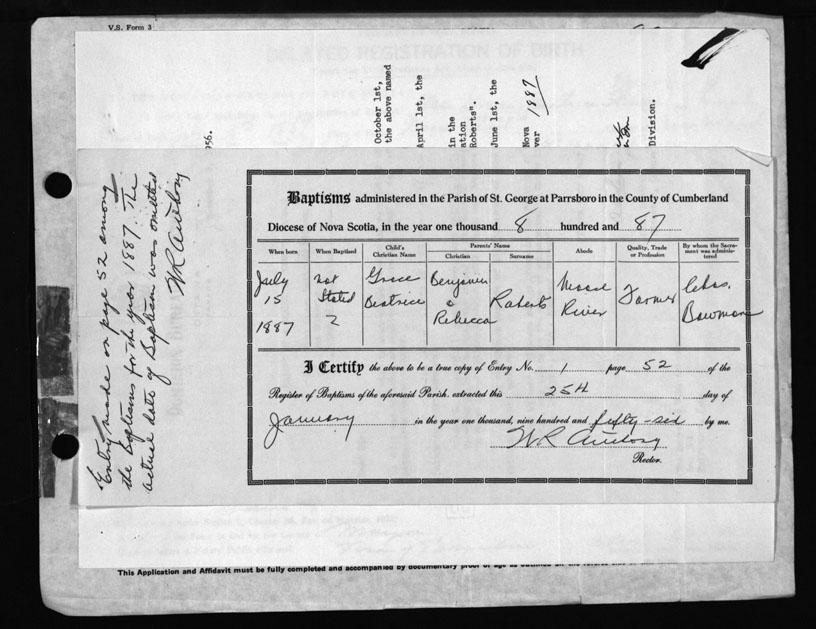 V.S. Form 3
October 1st,
the above named
April 1st, the
in the
ation
Roberts".
June 1st, the
Nova 1887
ver
Division.
956.
Entry made on page 52 among
the Baptisms for the year 1887. The
actual date of Baptism was omitted
Baptisms administered in the Parish of St. George at Parrsboro in the County of Cumberland
Diocese of Nova Scotia, in the year one thousand 8 hundred and 87
When born When Baptised Child's Christian Name Parents' Name Christian Surname Abode Quality, Trade or Profession By whom the Sacrament was administered
July 15 1887 not Stated Grace Beatrice Benjamin & Rebecca Roberts Moose River Farmer Chas. Bowman
I Certify the above to be a true copy of Entry No. 1 page 52 of the
Register of Baptisms of the aforesaid Parish. extracted this 25th day of
January in the year one thousand, nine hundred and fifty-six by me.
Rector.
This Application and Affidavit must be fully completed and accompanied by documentary proof of age as outlined on the reverse